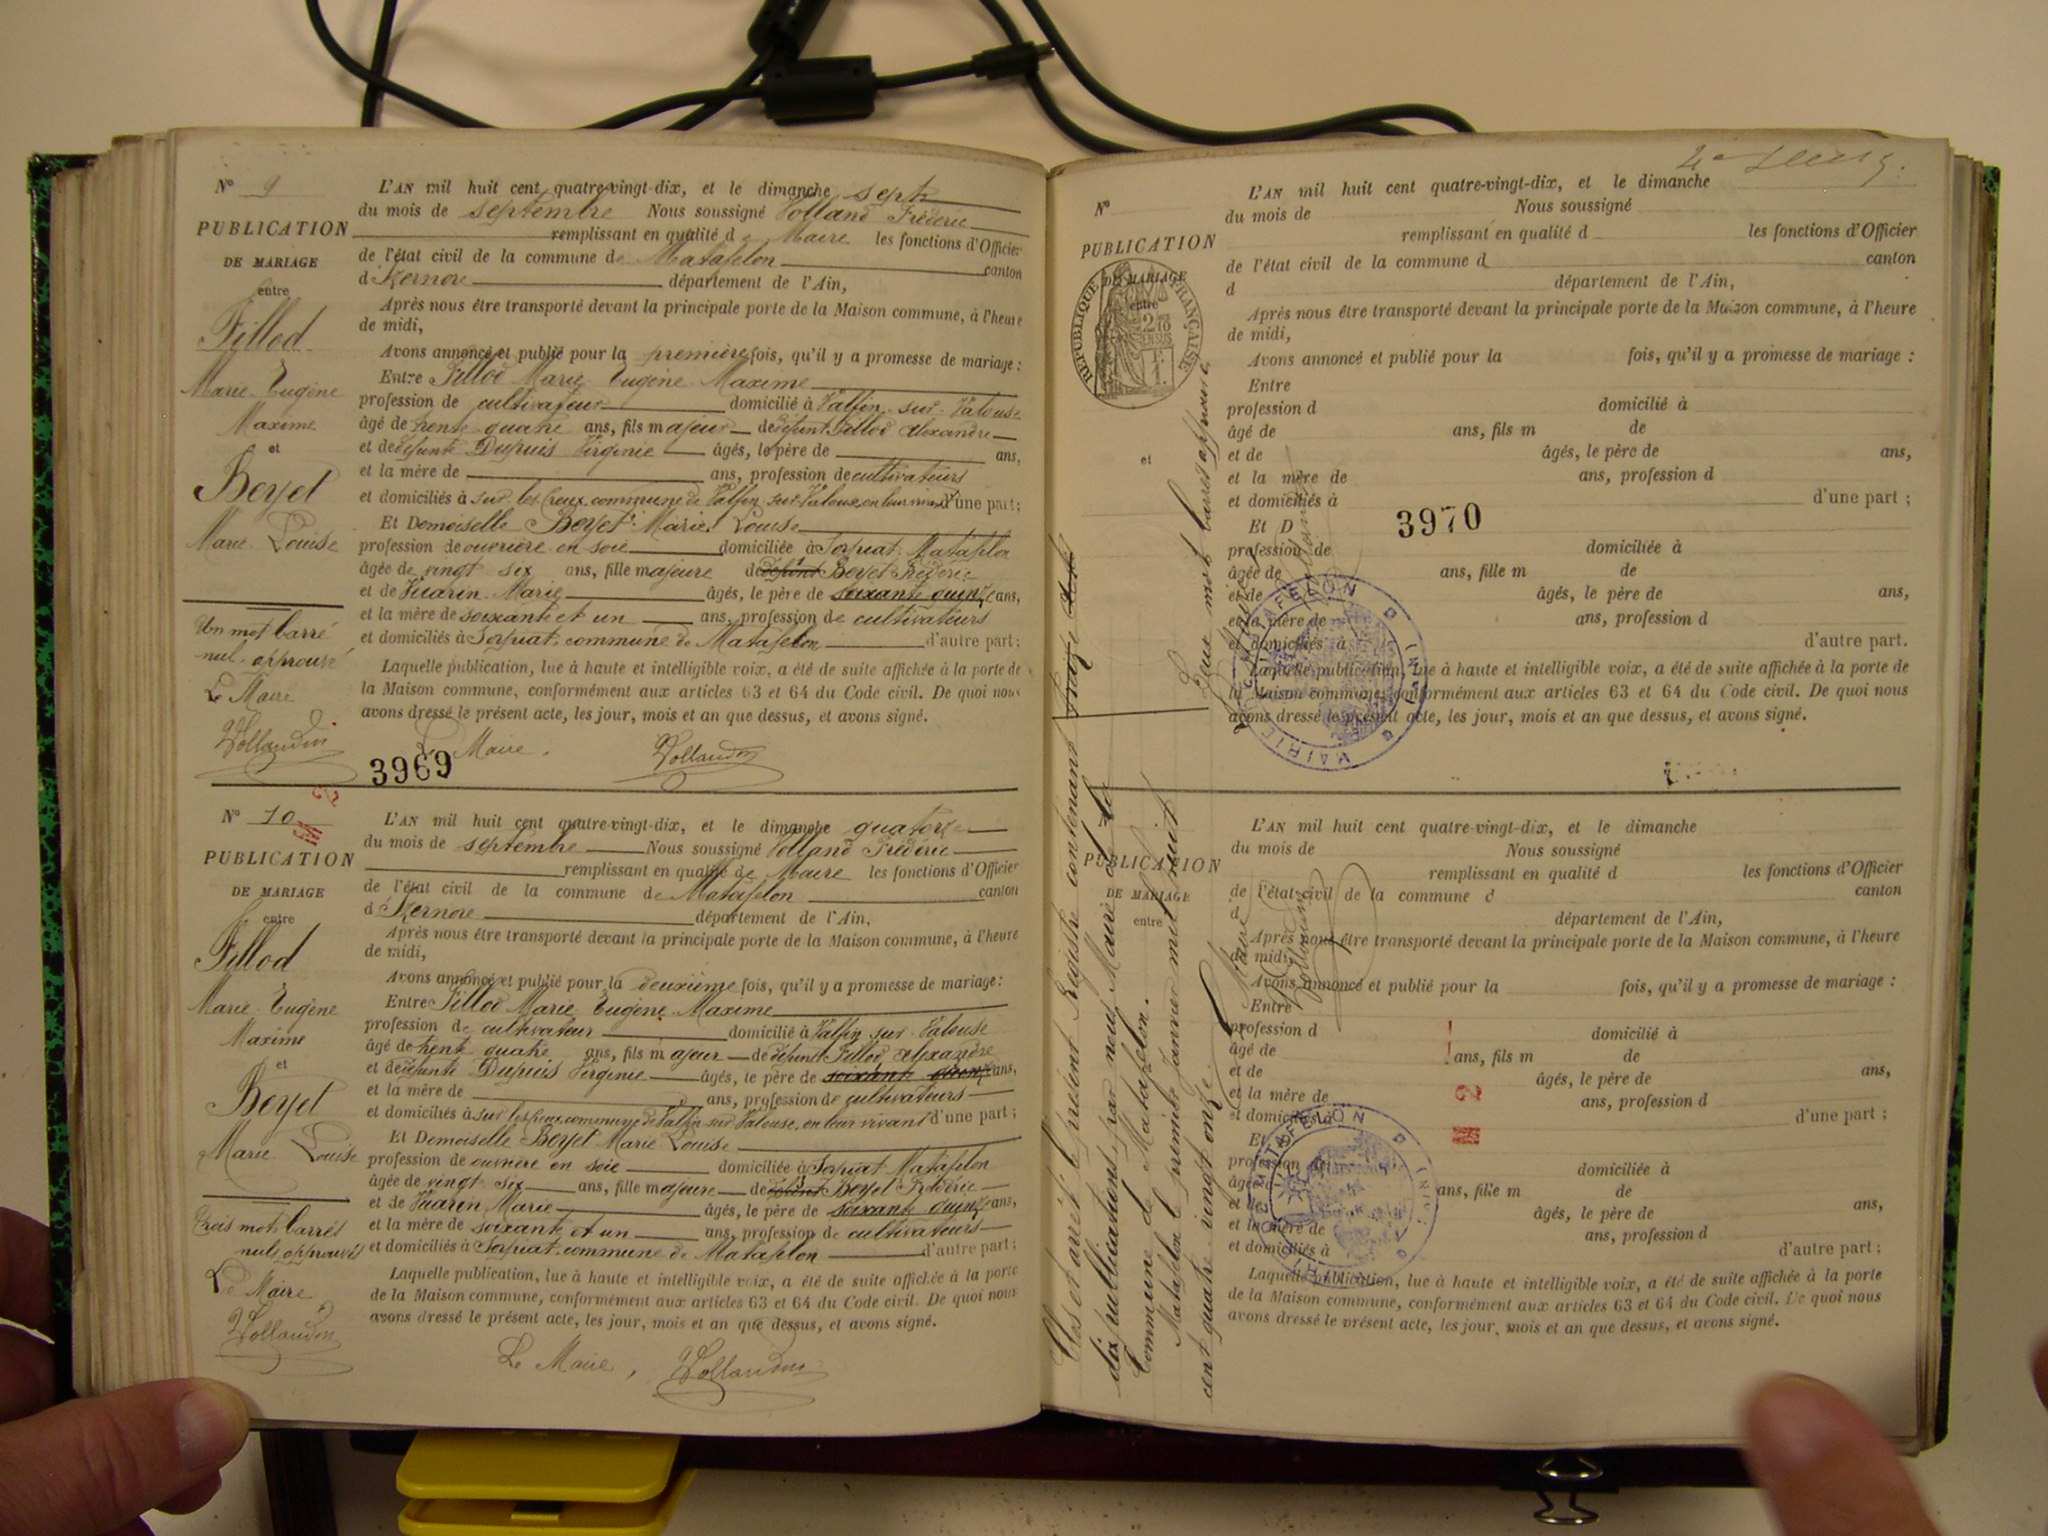 N° 9
PUBLICATION
DE MARIAGE
entre
Fillod
Marie Eugène
Maxime
et
Beyet
Marie Louise
Un mot barré
nul approuvé
Le Maire
Vollandin
L'AN mil huit cent quatre-vingt-dix, et le dimanche sept
du mois de septembre Nous soussigné Volland Frédéric
remplissant en qualité de Maire les fonctions d'Officier
de l'état civil de la commune de Matafelon canton
d'Izernore département de l'Ain,
Après nous être transporté devant la principale porte de la Maison commune, à l'heure
de midi,
Avons annoncé et publié pour la première fois, qu'il y a promesse de mariage :
Entre Fillod Marie Eugène Maxime
profession de cultivateur domicilié à Valfin sur Valouse
âgé de trente quatre ans, fils majeur de défunt Fillod Alexandre
et de défunte Dupuis Virginie âgés, le père de ans,
et la mère de ans, profession de cultivateurs
et domiciliés à sur les Creux commune de Valfin sur Valouse, en leur vivant d'une part ;
Et Demoiselle Beyet Marie Louise
profession de ouvrière en soie domiciliée à Sorpiat Matafelon
âgée de vingt six ans, fille majeure de défunt Beyet Frédéric
et de Vuarin Marie âgés, le père de soixante quinze ans,
et la mère de soixante et un ans, profession de cultivateurs
et domiciliés à Sorpiat commune de Matafelon d'autre part ;
Laquelle publication, lue à haute et intelligible voix, a été de suite affichée à la porte de
la Maison commune, conformément aux articles 63 et 64 du Code civil. De quoi nous
avons dressé le présent acte, les jour, mois et an que dessus, et avons signé.
Le Maire,
Vollandin
3969
N° 10
PUBLICATION
DE MARIAGE
entre
Fillod
Marie Eugène
Maxime
et
Beyet
Marie Louise
Trois mots barrés
nuls approuvés
Le Maire
Vollandin
L'AN mil huit cent quatre-vingt-dix, et le dimanche quatorze
du mois de septembre Nous soussigné Volland Frédéric
remplissant en qualité de Maire les fonctions d'Officier
de l'état civil de la commune de Matafelon canton
d'Izernore département de l'Ain,
Après nous être transporté devant la principale porte de la Maison commune, à l'heure
de midi,
Avons annoncé et publié pour la deuxième fois, qu'il y a promesse de mariage :
Entre Fillod Marie Eugène Maxime
profession de cultivateur domicilié à Valfin sur Valouse
âgé de trente quatre ans, fils majeur de défunt Fillod Alexandre
et de défunte Dupuis Virginie âgés, le père de soixante quinze ans,
et la mère de ans, profession de cultivateurs
et domiciliés à sur les Creux commune de Valfin sur Valouse, en leur vivant d'une part ;
Et Demoiselle Beyet Marie Louise
profession de ouvrière en soie domiciliée à Sorpiat Matafelon
âgée de vingt six ans, fille majeure de défunt Beyet Frédéric
et de Vuarin Marie âgés, le père de soixante quinze ans,
et la mère de soixante et un ans, profession de cultivateurs
et domiciliés à Sorpiat commune de Matafelon d'autre part ;
Laquelle publication, lue à haute et intelligible voix, a été de suite affichée à la porte
de la Maison commune, conformément aux articles 63 et 64 du Code civil. De quoi nous
avons dressé le présent acte, les jour, mois et an que dessus, et avons signé.
Le Maire,
Vollandin
N°
PUBLICATION
DE MARIAGE
entre
RÉPUBLIQUE FRANÇAISE
et
L'AN mil huit cent quatre-vingt-dix, et le dimanche
du mois de Nous soussigné
remplissant en qualité d les fonctions d'Officier
de l'état civil de la commune d canton
d département de l'Ain,
Après nous être transporté devant la principale porte de la Maison commune, à l'heure
de midi,
Avons annoncé et publié pour la fois, qu'il y a promesse de mariage :
Entre
profession d domicilié à
âgé de ans, fils m de
et de âgés, le père de ans,
et la mère de ans, profession d
et domiciliés à d'une part ;
Et D
3970
profession de domiciliée à
âgée de ans, fille m de
et de âgés, le père de ans,
et la mère de ans, profession d
et domiciliés à d'autre part.
Laquelle publication, lue à haute et intelligible voix, a été de suite affichée à la porte de
la Maison commune, conformément aux articles 63 et 64 du Code civil. De quoi nous
avons dressé le présent acte, les jour, mois et an que dessus, et avons signé.
MAIRIE DE MATAFELON (AIN)
N°
PUBLICATION
DE MARIAGE
entre
L'AN mil huit cent quatre-vingt-dix, et le dimanche
du mois de Nous soussigné
remplissant en qualité d les fonctions d'Officier
de l'état civil de la commune d canton
d département de l'Ain,
Après nous être transporté devant la principale porte de la Maison commune, à l'heure
de midi,
Avons annoncé et publié pour la fois, qu'il y a promesse de mariage :
Entre
profession d domicilié à
âgé de ans, fils m de
et de âgés, le père de ans,
et la mère de ans, profession d
et domiciliés à d'une part ;
Et D
profession de domiciliée à
âgée de ans, fille m de
et de âgés, le père de ans,
et la mère de ans, profession d
et domiciliés à d'autre part ;
Laquelle publication, lue à haute et intelligible voix, a été de suite affichée à la porte
de la Maison commune, conformément aux articles 63 et 64 du Code civil. De quoi nous
avons dressé le présent acte, les jour, mois et an que dessus, et avons signé.
MAIRIE DE MATAFELON (AIN)
Clos et arrêté le présent Registre contenant
dix publications par nous Maire de la
Commune de Matafelon.
Matafelon le premier janvier mil huit
cent quatre vingt onze.
Le Maire
Vollandin
Deux mots barrés approuvés